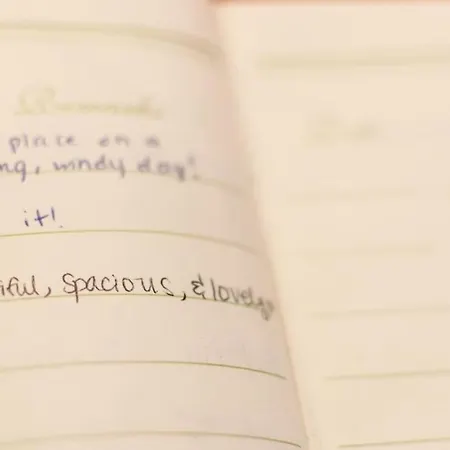 Remarks
place on a
ng, windy day".
it!
iful, spacious, & lovely